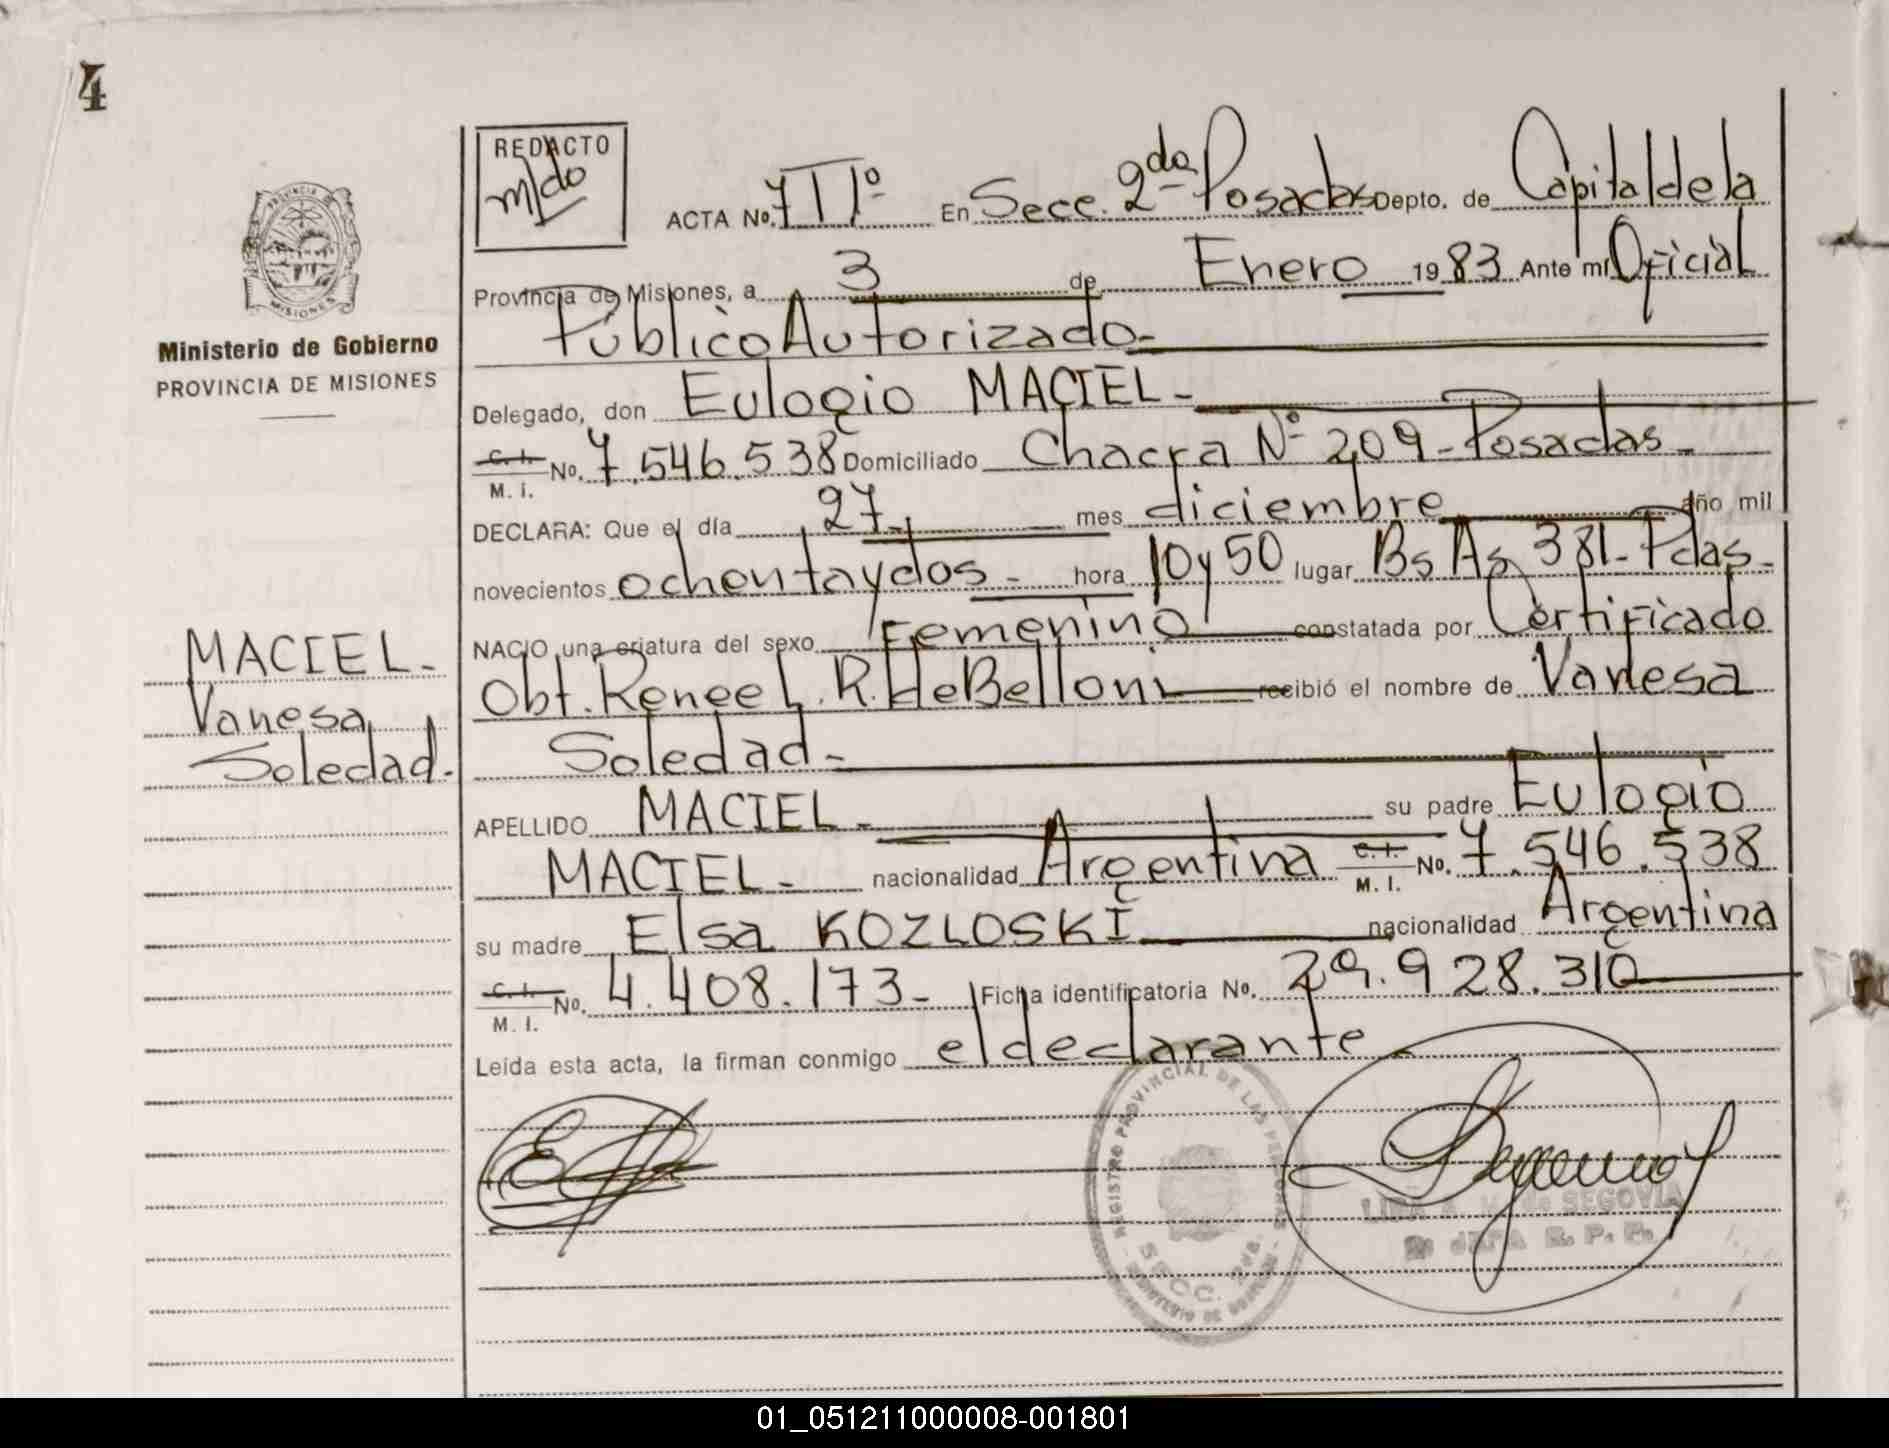 4
REDACTO
m/do
ACTA No. 7 IIº En Secc. 2da Posadas Depto. de Capital de la
Provincia de Misiones, a 3 de Enero 1983 Ante mi Oficial
Público Autorizado-
Delegado, don Eulogio MACIEL-
C. I. No. 7.546.538 Domiciliado Chacra Nº 209-Posadas-
M. I.
DECLARA: Que el día 27 mes diciembre año mil
novecientos ochenta y dos- hora 10 y 50 lugar Bs As 381-Pdas-
NACIO una criatura del sexo Femenino constatada por Certificado
Obt. Renee L. R. de Belloni recibió el nombre de Vanesa
Soledad-
APELLIDO MACIEL- su padre Eulogio
MACIEL- nacionalidad Argentina C. I. No. 7.546.538
M. I.
su madre Elsa KOZLOSKI nacionalidad Argentina
C. I. No. 4.408.173- Ficha identificatoria No. 29.928.310
M. I.
Leida esta acta, la firman conmigo el declarante
PROVINCIA DE
MISIONES
Ministerio de Gobierno
PROVINCIA DE MISIONES
MACIEL-
Vanesa
Soledad.-
REGISTRO PROVINCIAL DE LAS PERSONAS
SECC. 2da.
MINISTERIO DE GOBIERNO
de SEGOVIA
JEFA R. P. P.
01_051211000008-001801